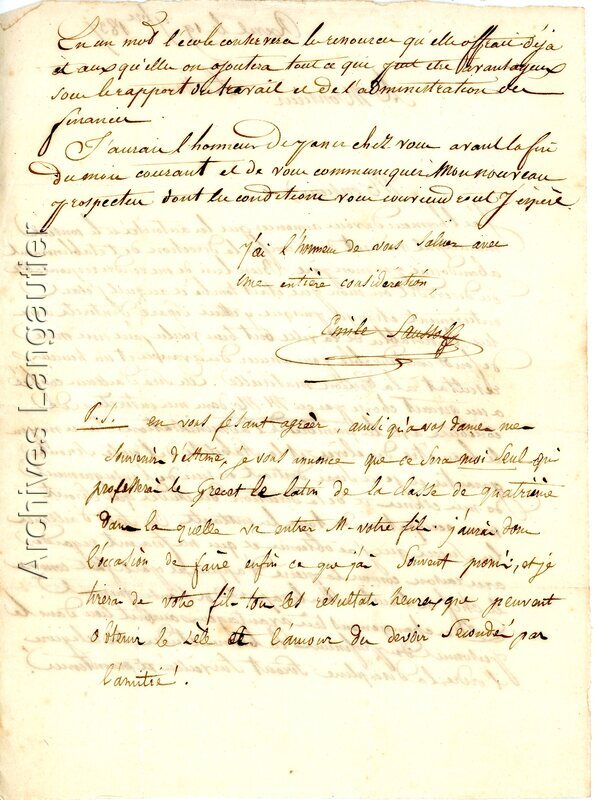 En un mot l'école conservera les ressources qu'elle offrait déjà
et auxquelles on ajoutera tout ce qui peut être avantageux
sous le rapport du travail et de l'administration des
finances.
J'aurai l'honneur de passer chez vous avant la fin
du mois courant et de vous communiquer mon nouveau
prospectus dont les conditions vous conviendront J'espère.
j'ai l'honneur de vous saluer avec
une entière considération,
Emile
P.S. en vous fesant agréer, ainsi qu'a vos dames mes
souvenirs d'estime, je vous annonce que ce sera moi seul qui
professerai le Grec et le latin de la classe de quatrième
dans la quelle va entrer M. votre fils. j'aurai donc
l'occasion de faire enfin ce que j'ai souvent promis, et je
tirerai de votre fils tous les résultats heureux que peuvent
obtenir le zèle et l'amour du devoir secondé par
l'amitié.
Archives Langautier